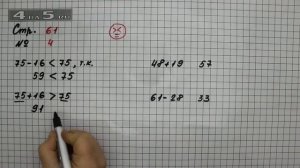 4 DA 5.RU
Стр. 61
№ 4
><
=
75-16 < 75, т.к.
59 < 75
75+16 > 75
91
48+19 57
61-28 33